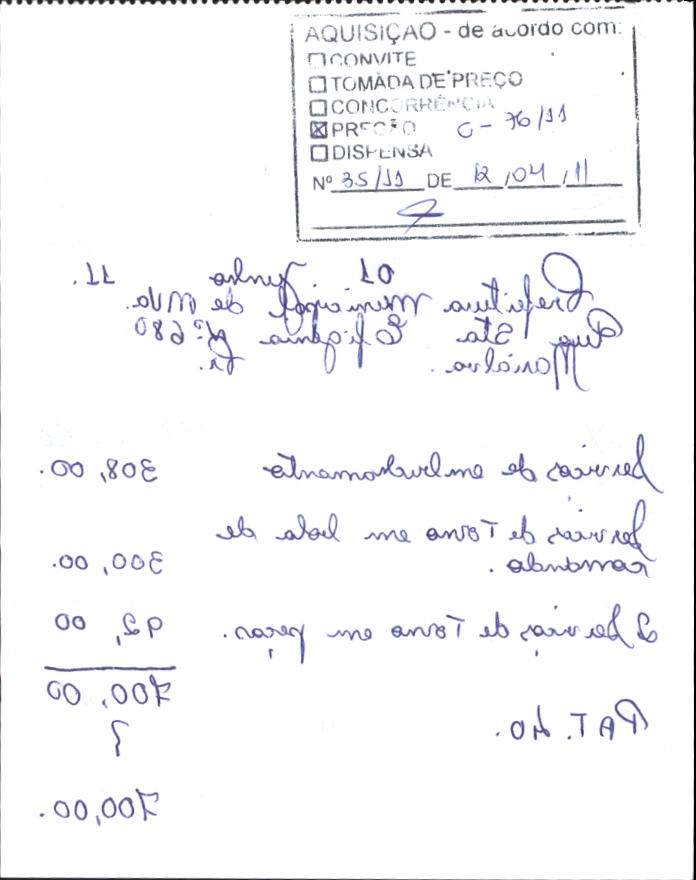 AQUISIÇAO - de acordo com:
☐ CONVITE
☐ TOMADA DE PREÇO
☐ CONCORRÊNCIA
☒ PREGÃO C - 76/11
☐ DISPENSA
Nº 35/11 DE 12/04/11
01 Junho 11.
Prefeitura Municipal de Mva.
Rua Sta Efigênia Nº 680
Marialva. Pr.
Serviços de embuchamento 308,00.
Serviços de Torno em bola de
comando. 300,00.
2 Serviços de Torno em peças. 92,00
700,00
PAT. 40.
700,00.